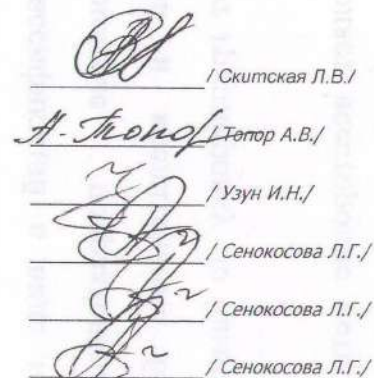 / Скитская Л.В./
А. Топор / Топор А.В./
/ Узун И.Н./
/ Сенокосова Л.Г./
/ Сенокосова Л.Г./
/ Сенокосова Л.Г./